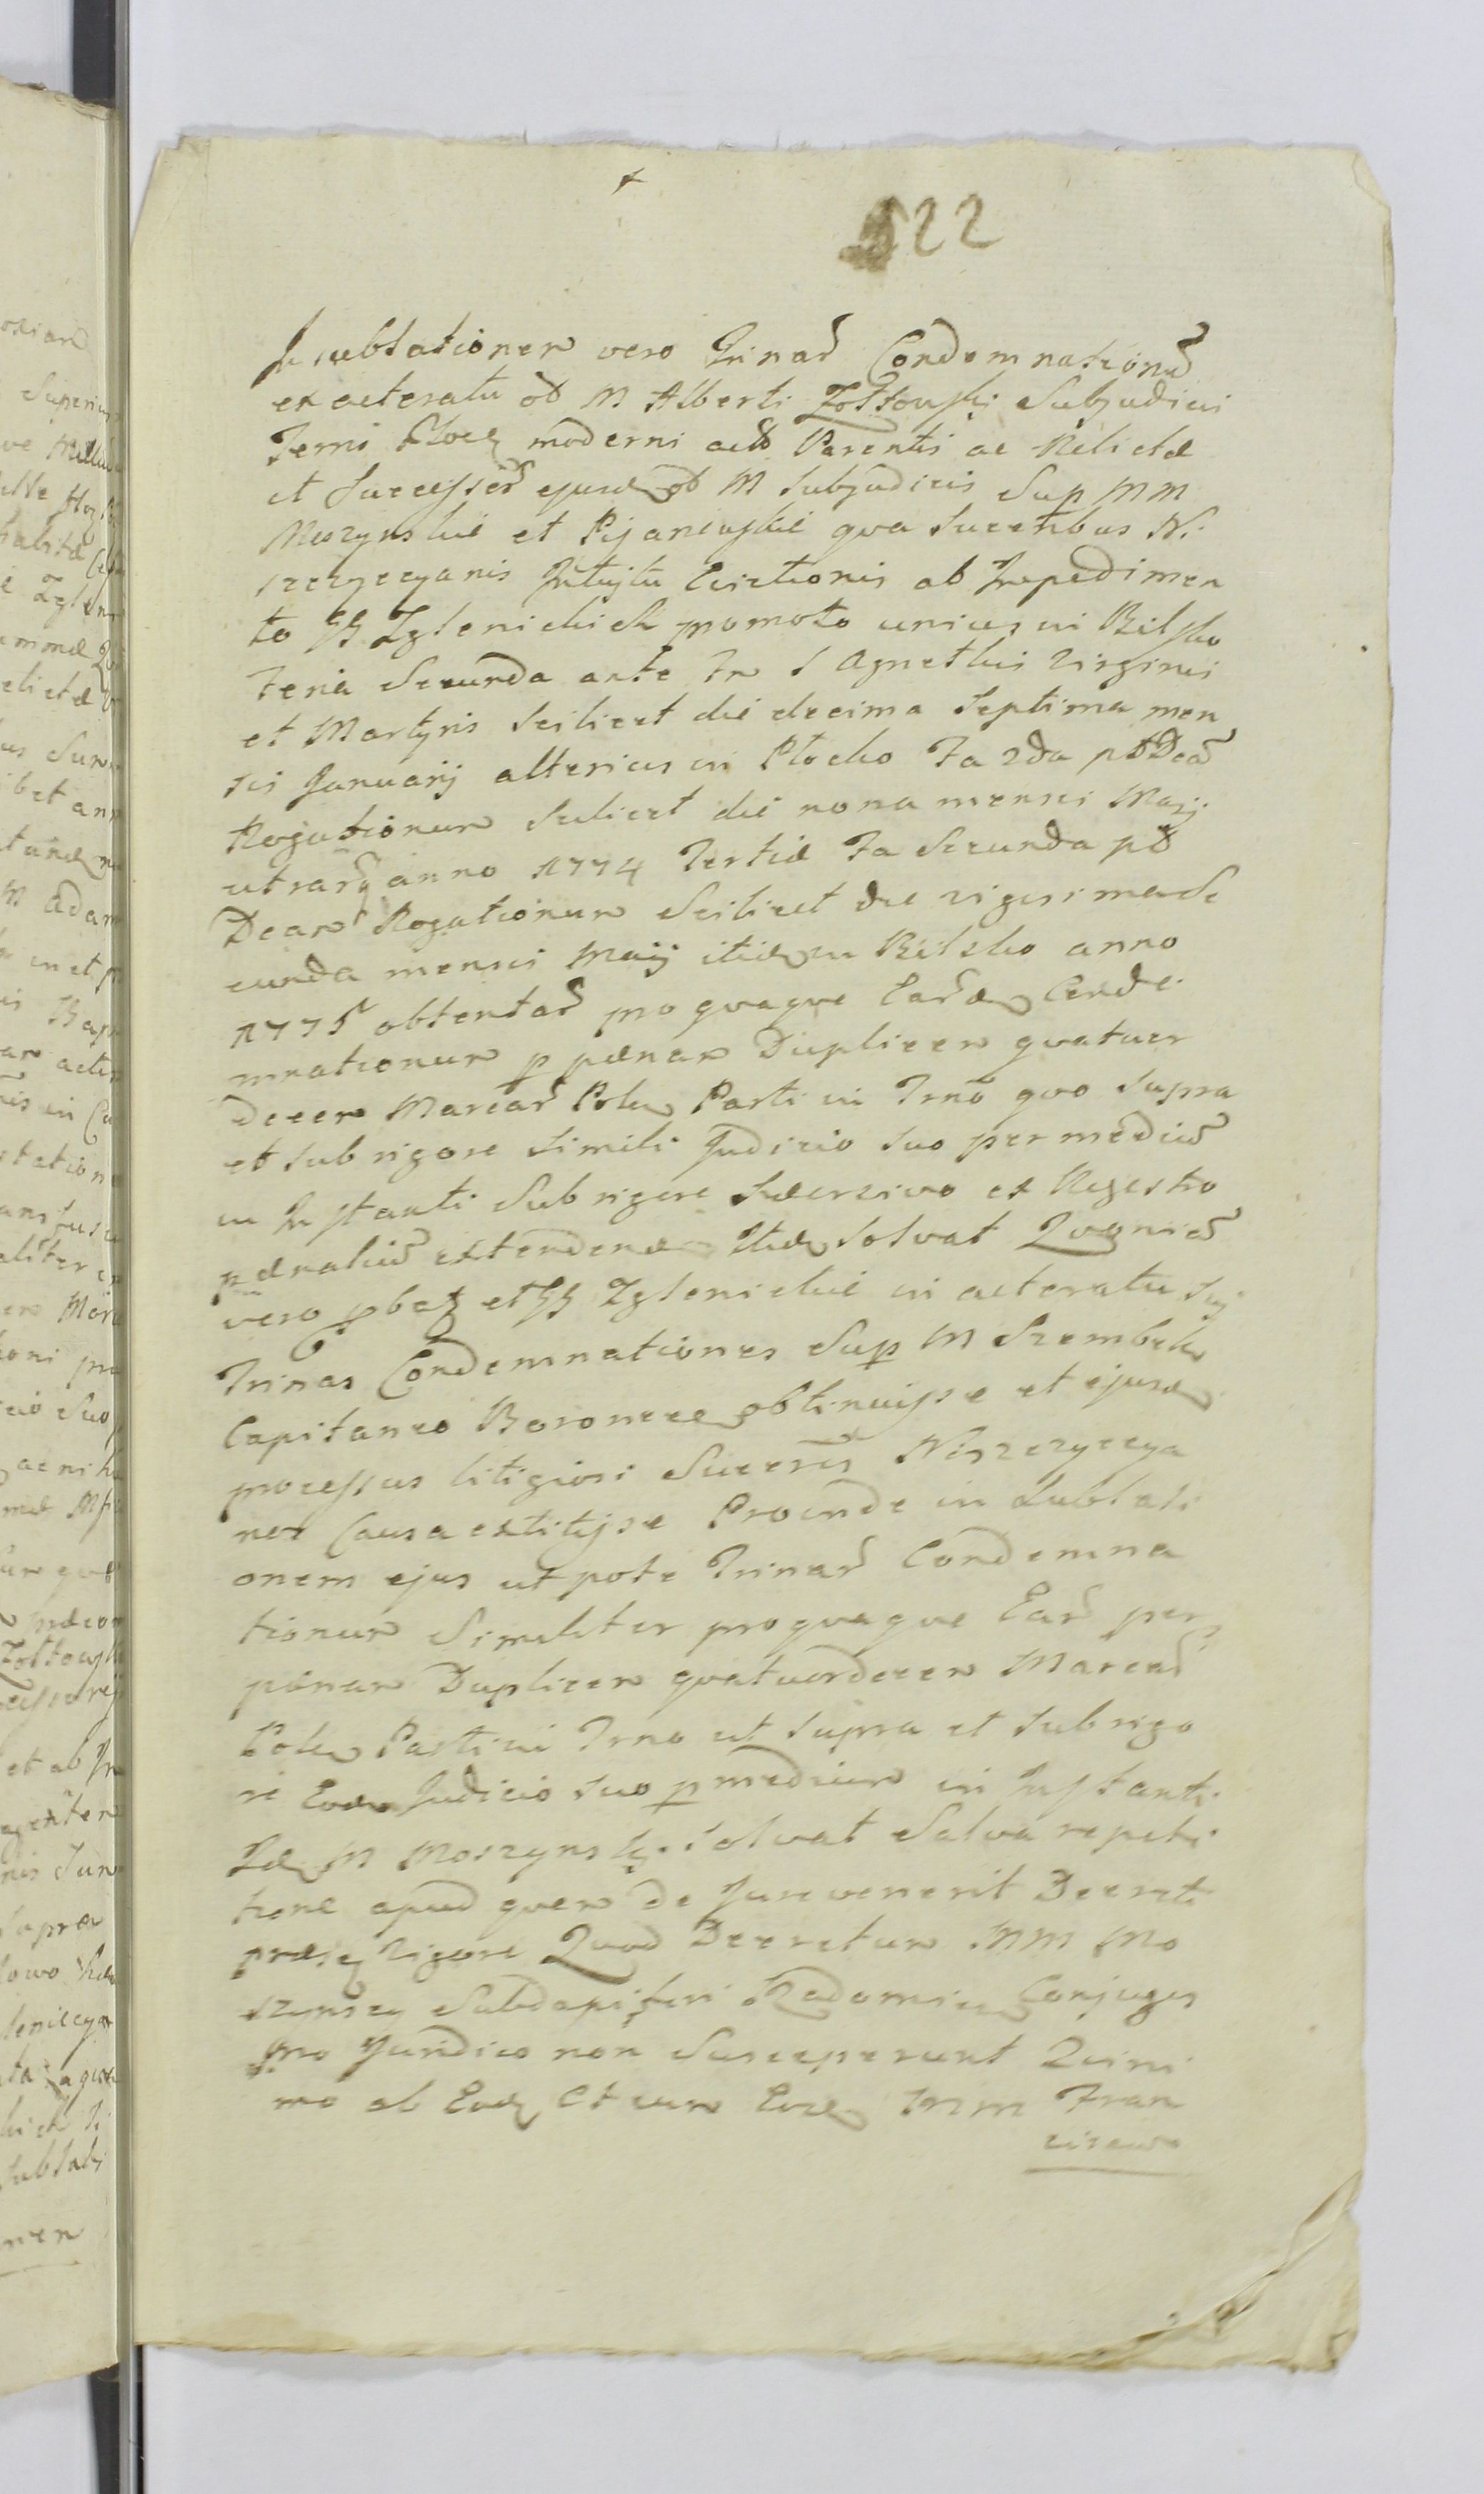 522
In sublationem vero Trinar Condemnationu
ex acteratu od M Alberti Zółtowski Subjudici
Terrae Ploce moderni actõ Parentis ac Relictæ
et Successor ejusd od M Subjudicis Sup MM
Moszynskie et Pijanowskie qva Sucertibus Ni
szczyccyanis Intujtu Evictionis ab Impedimen
to GG Zglenickich promoto unius in Bielsko
Feria Secunda ante Fm S Agnethis Virginis
et Martyris Scilicet die decima Septima men
sis Januarij alterius in Płocko Fa 2da pt Dca
Rogationum Scilicet die nona mensis Maij
utrarq anno 1774 Tertiæ Fa Secunda pt
Dcam Rogationum Scilicet die vigesima Se
cunda mensis Maij itid in Bielsko anno
1775 obtentar pro qvaqve Eard Conde
mnationum p pænam Duplicem qvatuor
decem Marcar Pol Parti in Trno qvo Supra
et sub rigore simili Judicio suo per mediu
in Instanti Sub rigere Subversivo ex Regestro
pænaliu extendend Itid solvat Qvoniã
vero pbat et GG Zglenickie in acteratu Suj
Trinas Condemnationes Sup M Szembek
Capitaneo Boronece obtinuisse et ejusd
processus litigiosi Sucerês Niszczyccya
nos Causa extitisse Proinde in Sublati
onem ejus utpote Trinar Condemna
tionum Similiter pro qvaqve Eard per
pænam Duplicem qvatuordecem Marcar
Pol Parti in Trno ut Supra et Sub rigo
re Eod Judicio suo p medium in Instanti
Id M Moszynski solvat Salva repeti
tione apud qvem de Jure venerit Decreti
præsq vigore Qvod Decretum MM Mo
szynscy Subdapiferi Radomie Conjuges
pro Juridico non Susceperunt Qvini
mo ab Eod Et cum Eod MM Fran
ciscum